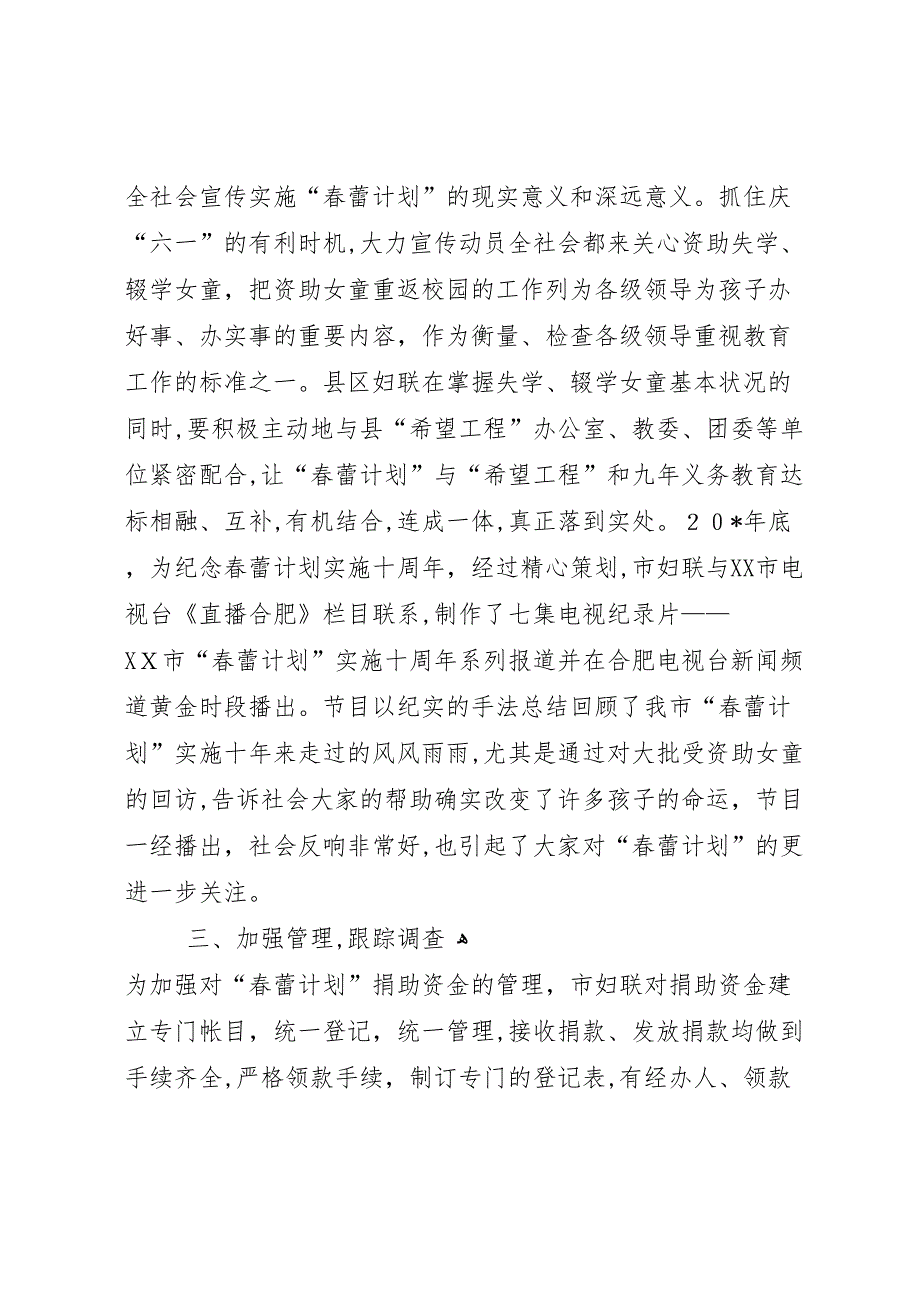 全社会宣传实施“春蕾计划”的现实意义和深远意义。抓住庆
“六一”的有利时机,大力宣传动员全社会都来关心资助失学、
辍学女童，把资助女童重返校园的工作列为各级领导为孩子办
好事、办实事的重要内容，作为衡量、检查各级领导重视教育
工作的标准之一。县区妇联在掌握失学、辍学女童基本状况的
同时,要积极主动地与县“希望工程”办公室、教委、团委等单
位紧密配合,让“春蕾计划”与“希望工程”和九年义务教育达
标相融、互补,有机结合,连成一体,真正落到实处。２０*年底
，为纪念春蕾计划实施十周年，经过精心策划,市妇联与XX市电
视台《直播合肥》栏目联系,制作了七集电视纪录片——
XＸ市“春蕾计划”实施十周年系列报道并在合肥电视台新闻频
道黄金时段播出。节目以纪实的手法总结回顾了我市“春蕾计
划”实施十年来走过的风风雨雨,尤其是通过对大批受资助女童
的回访,告诉社会大家的帮助确实改变了许多孩子的命运，节目
一经播出，社会反响非常好,也引起了大家对“春蕾计划”的更
进一步关注。
三、加强管理,跟踪调查 ﻫ
为加强对“春蕾计划”捐助资金的管理，市妇联对捐助资金建
立专门帐目，统一登记，统一管理,接收捐款、发放捐款均做到
手续齐全,严格领款手续，制订专门的登记表,有经办人、领款